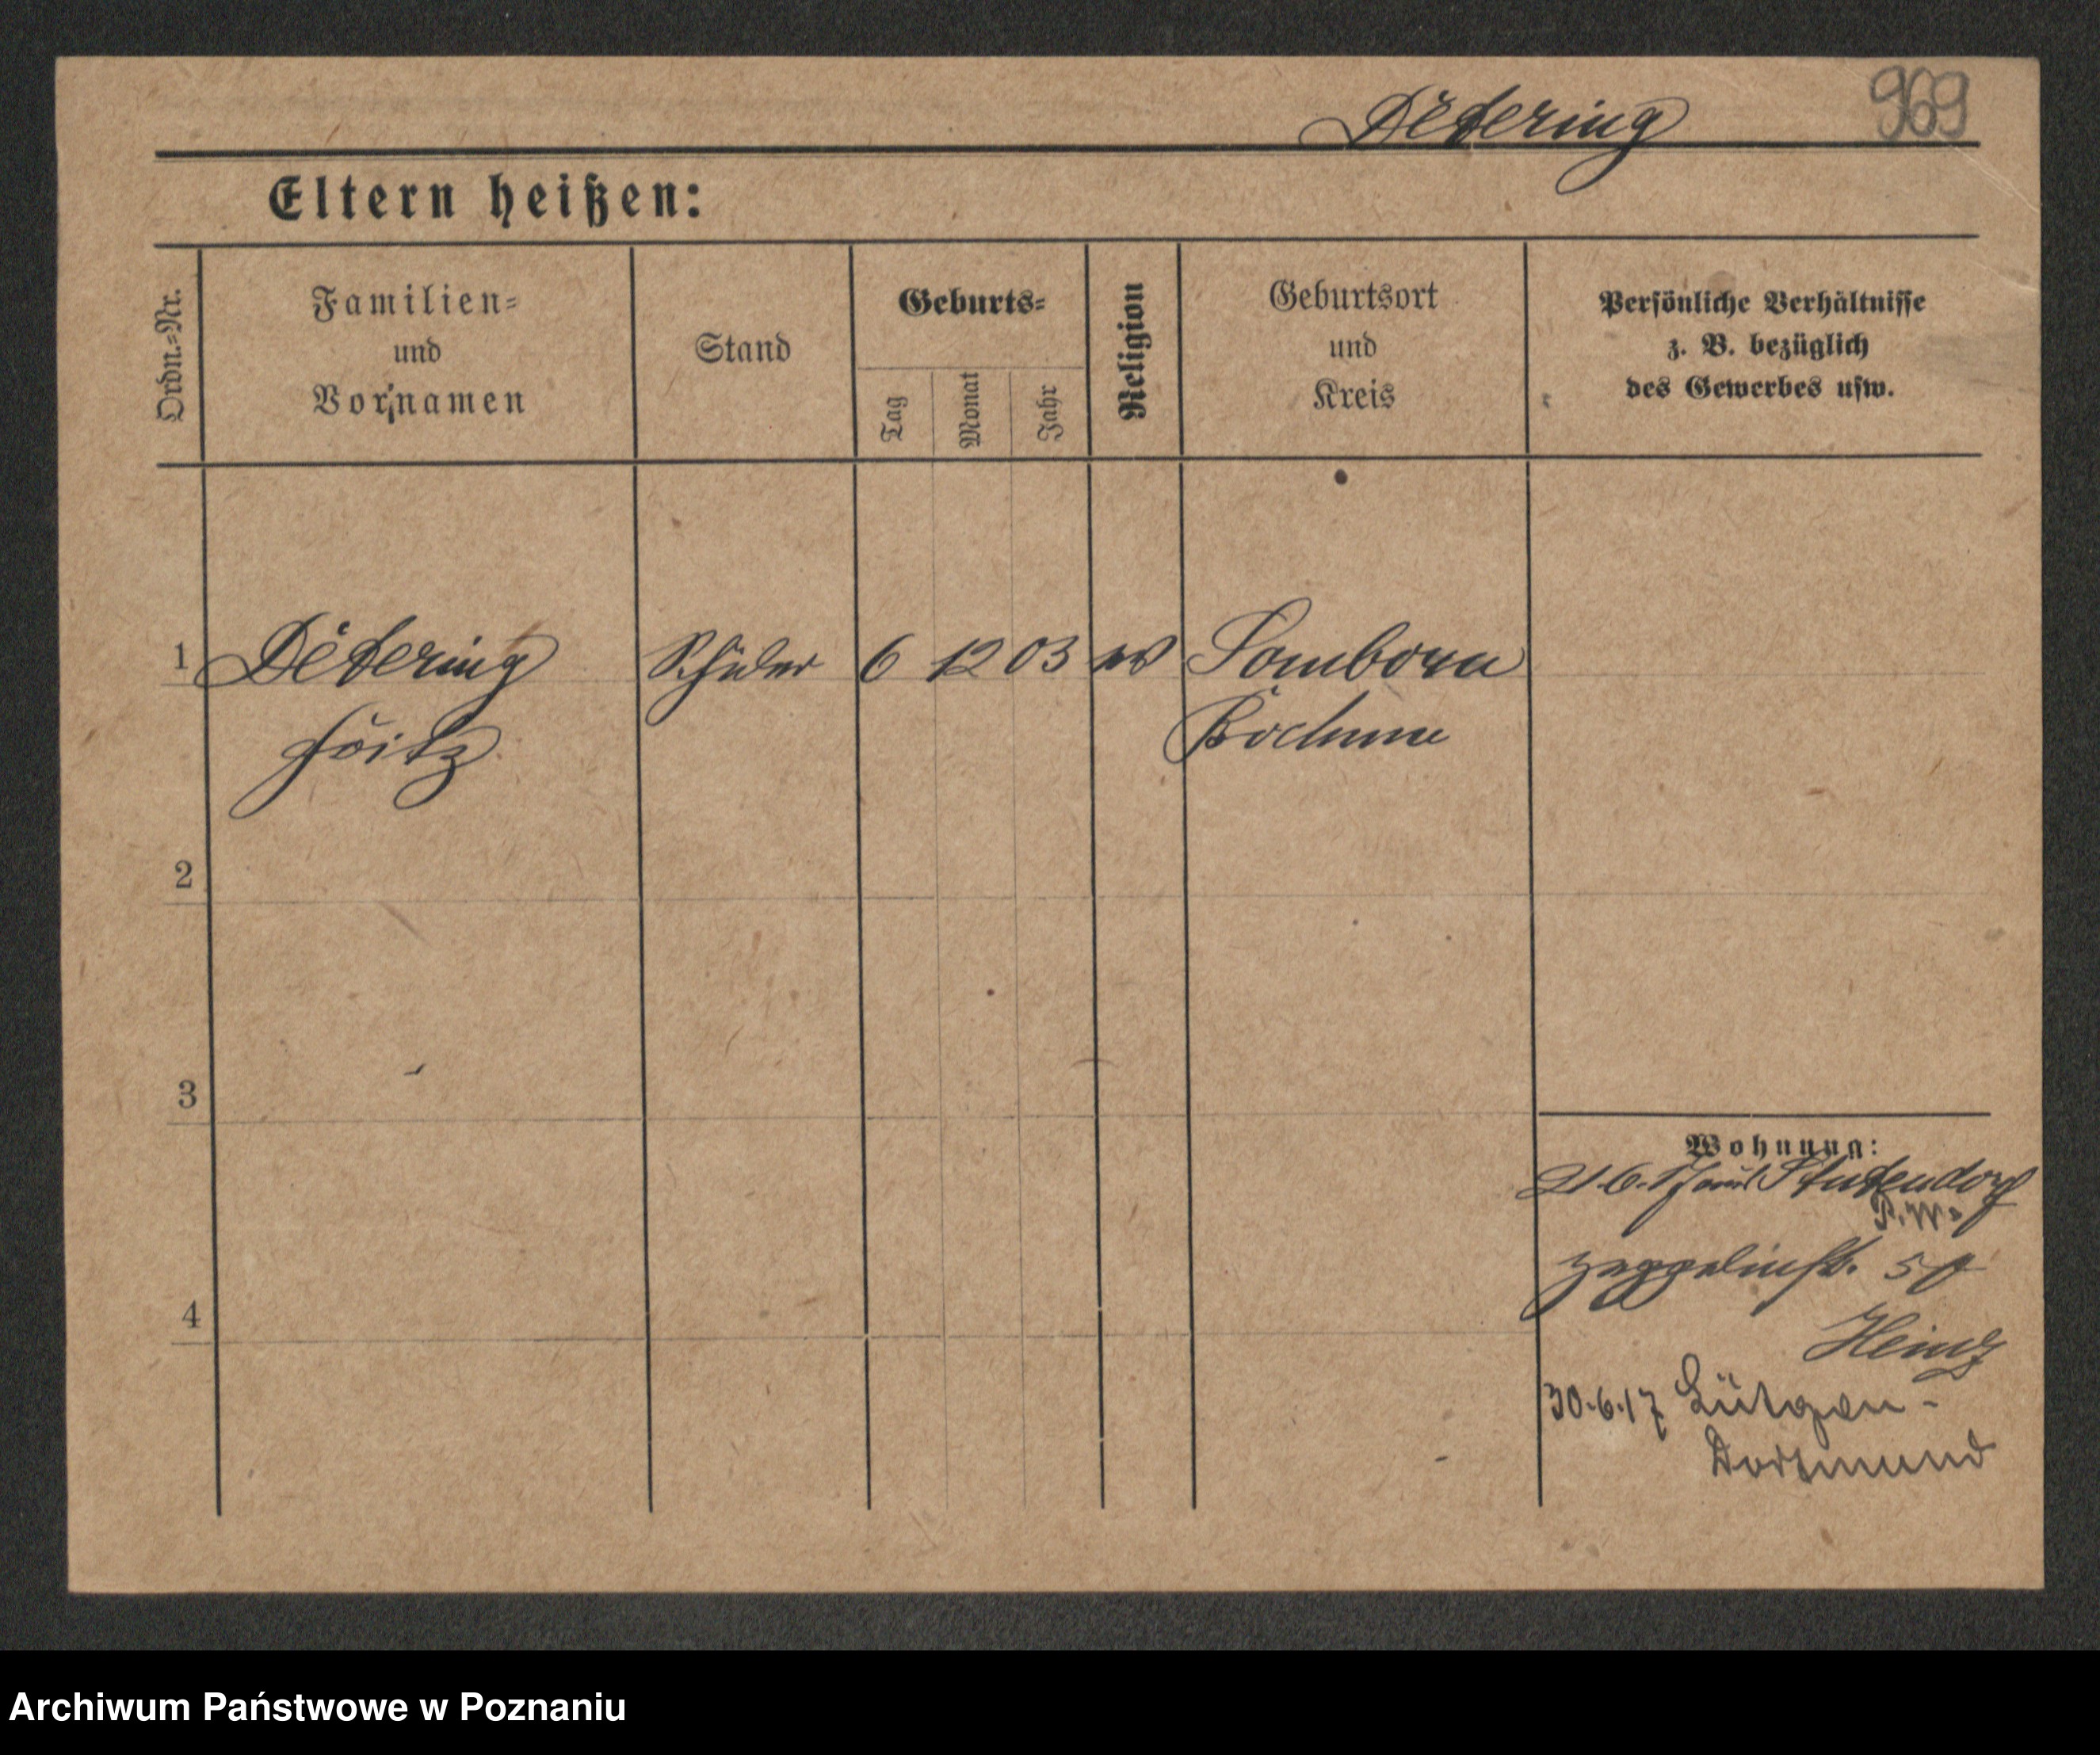 Detering 969
Eltern heißen:
Ordn.-Nr.
Familien-
und
Vor-namen
Stand
Geburts-
Tag
Monat
Jahr
Religion
Geburtsort
und
Kreis
Persönliche Verhältnisse
z. B. bezüglich
des Gewerbes usw.
1 Detering Schüler 6 12 03 ev Somborn
Fritz Bochum
2
3
4
Wohnung:
21.6.17 aus Stutendorf
Zeppelinstr. 50
Heinz
30.6.17 Lütgen-
Dortmund
Archiwum Państwowe w Poznaniu